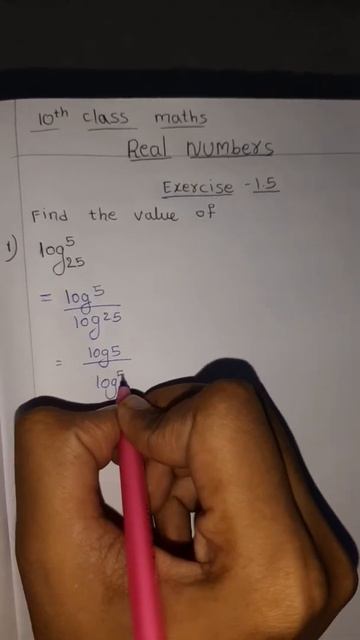 10th class maths
Real Numbers
Exercise - 1.5
Find the value of
1) log 5 25
= log 5
log 25
= log 5
log 5